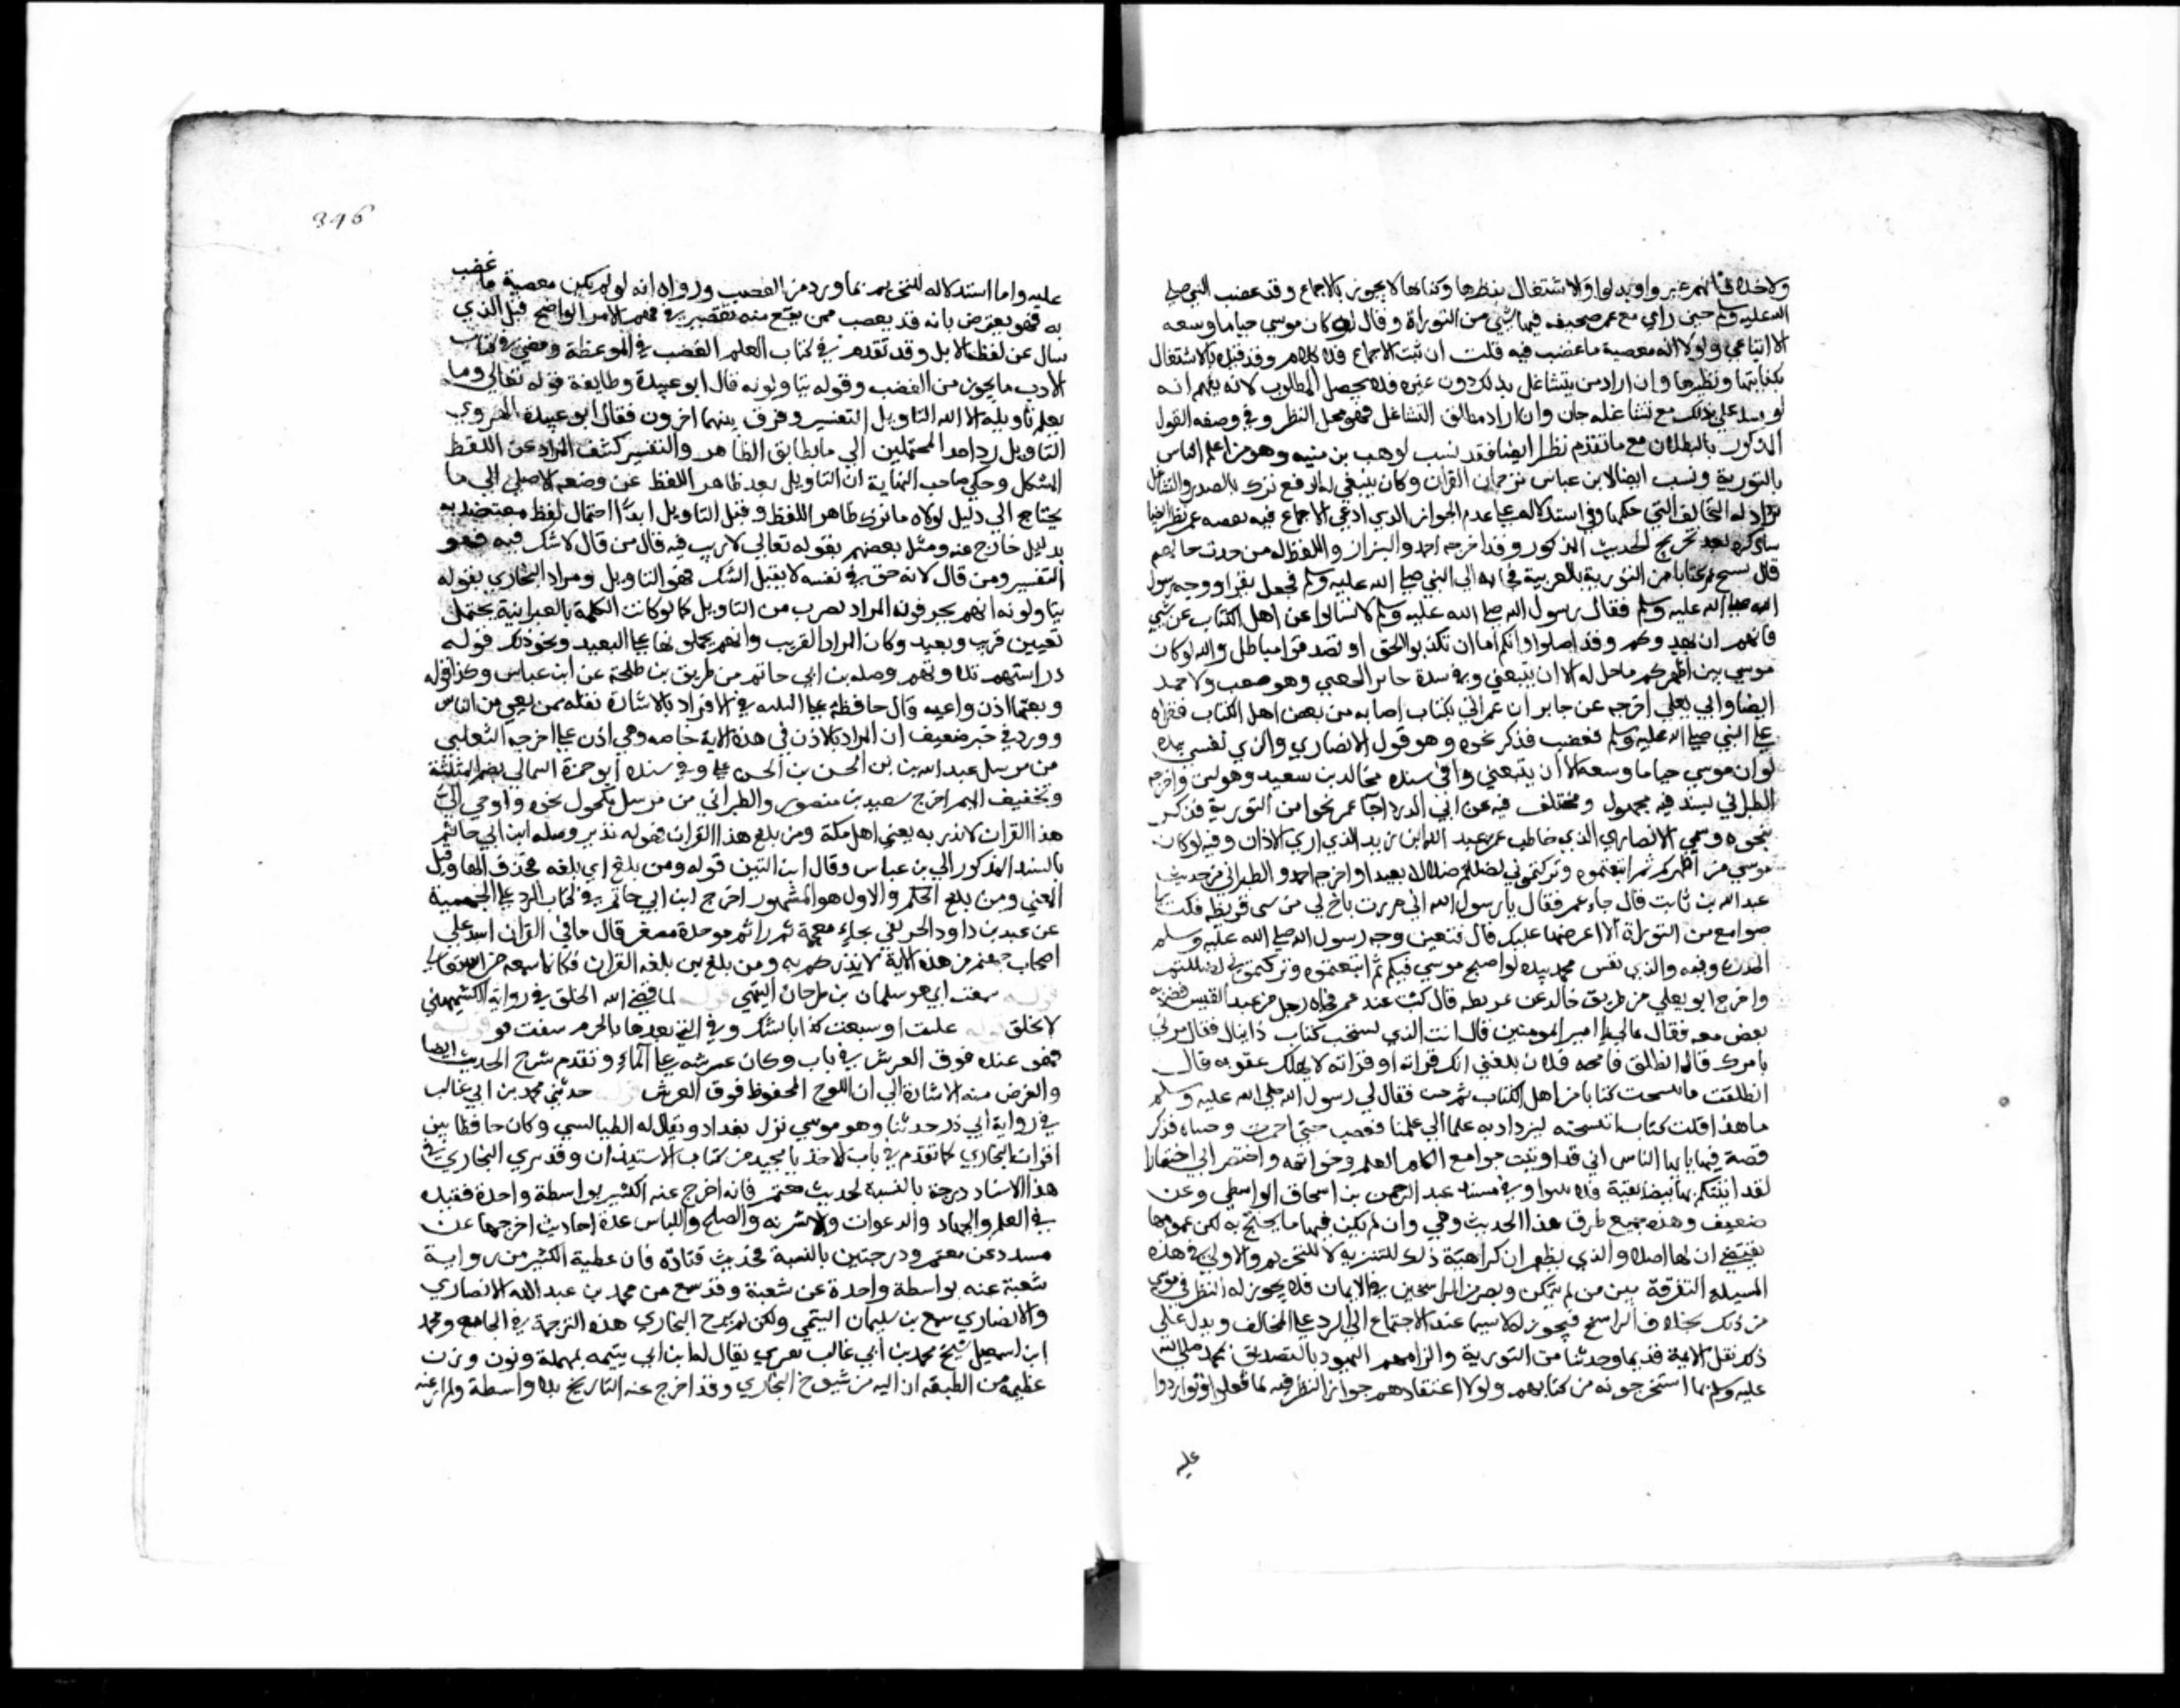 ولا خلاف انهم غيروا وبدلوا والاشتغال بنظرها وكتابها لا يجوز بالاجماع وقد غضب النبي صلى
الله عليه وسلم حين راي مع عمر صحيفه فيها شي من التوراة وقال لو كان موسى حيا ما وسعه
الا اتباعي ولولا انه معصية ما غضب فيه قلت ان ثبت الاجماع فلا كلام وقد قيده بالاشتغال
بكتابتها ونظرها وان اراد من يتشاغل بذلك دون غيره فلا يحصل المطلوب لانه يفهم انه
لو تشاغل بذلك مع تشاغله جاز وان اراد مطلق التشاغل فهو محل النظر وفي وصفه القول
المذكور بالبطلان مع ما تقدم نظر ايضا فقد نسب لوهب بن منبه وهو من اعلم الناس
بالتورية ونسب ايضا لابن عباس ترجمان القران وكان ينبغي له الدفع ترك بالصدر والتشاغل
برد ادلة المخالف التي حكيها وفي استدلاله على عدم الجواز الذي ادعي الاجماع فيه بقصه عمر نظر ايضا
ساذكره بعد تخريج الحديث المذكور وقد اخرجه احمد والبزار واللفظ له من حديث جابر
قال نسخ عمر كتابا من التورية بالعربية فجا به الى النبي صلى الله عليه وسلم فجعل يقرا ووجه رسول
الله صلى الله عليه وسلم فقال رسول الله صلى الله عليه وسلم لا تسالوا عن اهل الكتاب عن شي
فانهم لن يهدوكم وقد اضلوا وانكم اما ان تكذبوا بحق او تصدقوا بباطل والله لو كان
موسى بين اظهركم ما حل له الا ان يتبعني وفي سنده جابر الجعفي وهو ضعيف ولاحمد
ايضا وابي يعلي اخرجه عن جابر ان عمر اتي بكتاب اصابه من بعض اهل الكتاب فقراه
على النبي صلى الله عليه وسلم فغضب فذكر نحوه وهو قول الانصاري والذي نفسي بيده
لو ان موسى حيا ما وسعه الا ان يتبعني وفي سنده مجالد بن سعيد وهو لين واخرجه
الطبراني بسند فيه مجهول ومختلف فيه عن ابي الدردا جا عمر نحوا من التورية فذكر
بنحوه وسمي الانصاري الذي خاطب عمر عبد الله بن زيد الذي اري الاذان وفيه لو كان
موسى بين اظهركم ثم اتبعتموه وتركتموني لضللتم ضلالا بعيدا واخرجه احمد والطبراني من حديث
عبد الله بن ثابت قال جاء عمر فقال يا رسول الله اني مررت باخ لي من بني قريظه فكتب لي
جوامع من التوراة الا اعرضها عليك قال فتغير وجه رسول الله صلى الله عليه وسلم
الحديث وفيه والذي نفس محمد بيده لو اصبح موسى فيكم ثم اتبعتموه وتركتموني لضللتم
واخرج ابو يعلي من طريق خالد بن عرفطه قال كنت عند عمر فجاه رجل من عبد القيس فضربه
بعصى معه فقال مالي يا امير المومنين قال انت الذي نسخت كتاب دانيال فقال مرني
بامرك قال انطلق فامحه فلان بلغني انك قراته او اقراته لانهكنك عقوبه قال
انطلقت فانتسخت كتابا من اهل الكتاب ثم جيت فقال لي رسول الله صلى الله عليه وسلم
ما هذا قلت كتاب انتسخته لنزداد به علما الى علمنا فغضب حتى احمرت وجنتاه فذكر
قصة فيها يا ايها الناس اني قد اوتيت جوامع الكلم وخواتمه واختصر لي اختصارا
لقد اتيتكم بها بيضا نقية فلا تتهوكوا وفي سنده عبد الرحمن بن اسحاق الواسطي وهو
ضعيف وهذه جميع طرق هذا الحديث وهي وان لم يكن فيها ما يحتج به لكن مجموعها
يقتضي ان لها اصلا والذي يظهر ان كراهية ذلك للتنزيه لا للتحريم والاولى في هذه
المسيله التفرقة بين من لم يتمكن ويصر من الراسخين في الايمان فلا يجوز له النظر في شي
من ذلك بخلاف الراسخ فيجوز له لا سيما عند الاحتياج الى الرد على المخالف ويدل على
ذلك نقل الايمة قديما وحديثا من التورية والزامهم اليهود بالتصديق بمحمد صلى الله
عليه وسلم بما استخرجونه من كتابهم ولولا اعتقادهم جواز النظر فيه لما فعلوه وتواردوا
عليه
346
عليه واما استدلاله للتحريم بما ورد من الغضب ودعواه انه لو لم يكن معصية ما غضب
به فهو يعترض بانه قد يغضب ممن يقع منه تقصير في فهم الامر الواضح قبل الذي
سال عن لقطة الابل وقد تقدم في كتاب العلم الغضب في الموعظة ومضى في كتاب
الادب ما يجوز من الغضب وقوله يتاولونه قال ابو عبيدة وطايفة قوله تعالى وما
يعلم تاويله الا الله التاويل التفسير وفرق بينهما اخرون فقال ابو عبيدة الهروي
التاويل رد احد المحتملين الى ما يطابق الظاهر والتفسير كشف المراد عن اللفظ
المشكل وحكى صاحب النهاية ان التاويل نقل ظاهر اللفظ عن وضعه الاصلي الى ما
يحتاج الى دليل لولاه ما ترك ظاهر اللفظ وقيل التاويل ابدا احتمال لفظ معتضد به
بدليل خارج عنه ومثل بعضهم بقوله تعالى لا ريب فيه قال من قال لا شك فيه فهو
التفسير ومن قال لانه حق في نفسه لا يقبل الشك فهو التاويل ومراد البخاري بقوله
يتاولونه انهم يحرفونه المراد بضرب من التاويل كما لو كانت الكلمة بالعبرانية تحتمل
معنيين قريب وبعيد وكان المراد القريب وانهم يحملونها على البعيد ونحو ذلك قوله
دراستهم تلاوتهم وصله بن ابي حاتم من طريق بن طلحة عن ابن عباس وكذا قوله
وتعيها اذن واعيه قال حافظة على البلبه في الافراد بالاشارة نقله ممن يعي من الناس
وورد في خبر ضعيف ان المراد بالاذن في هذه الاية خاصه وهي اذن علي اخرجه الثعلبي
من مرسل عبد الله بن الحسن بن الحسن علي وفي سنده ابو حمزة الثمالي بضم المثلثة
وتخفيف الميم اخرج سعيد بن منصور والطبراني من مرسل مكحول نحوه واوحي الي
هذا القران لانذركم به يعني اهل مكة ومن بلغ هذا القران فهو له نذير وصله ابن ابي حاتم
بالسند المذكور الى بن عباس وقال ابن التين قوله ومن بلغ اي بلغه فحذف الها وقيل
المعني ومن بلغ الحكم والاول هو المشهور اخرج ابن ابي حاتم في كتاب الرد على الجهمية
عن عبد بن داود الخريبي بخاء معجمة ثم راء ثم موحدة مصغر قال ما في القران اشد علي
اصحاب جهنم من هذه الاية لانذركم به ومن بلغ من بلغه القران فكانما سمعه من الله تعالى
قوله سمعت ابي هو سلمان بن طرخان التيمي قوله لما قضى الله الخلق في رواية الكشميهني
لا يخلق قوله غلبت او سبقت كذا بالشك وفي التي بعدها بالجزم سبقت قوله
فهو عنده فوق العرش في باب وكان عرشه على الماء وتقدم شرح الحديث ايضا
والغرض منه الاشارة الى ان اللوح المحفوظ فوق العرش قوله حدثني محمد بن ابي غالب
في رواية ابي ذر حدثنا وهو موسي نزل بغداد ويقال له الطيالسي وكان حافظا من
اقران البخاري كما تقدم في باب الاخذ باليد من كتاب الاستيذان وقد نزل البخاري في
هذا الاسناد درجة بالنسبة لحديث معتمر فانه اخرج عنه الكثير بواسطة واحدة فعنده
في العلم والجهاد والدعوات والاشربه والصلح واللباس عدة احاديث اخرجها عن
مسدد عن معتمر ودرجتين بالنسبة لحديث قتادة فان عنده الكثير من رواية
شعبة عنه بواسطة واحدة عن شعبة وقد سمع من محمد بن عبد الله الانصاري
والانصاري سمع بن سليمان التيمي ولكن لم يخرج البخاري هذه الترجمة في الجامع ومحمد
ابن اسمعيل شيخ محمد بن ابي غالب بصري يقال له ابن ابي سمينه بمهملة ونون وزن
عظيمه من الطبقة الثالثه من شيوخ البخاري وقد اخرج عنه التاريخ بلا واسطة ولم ار عنه